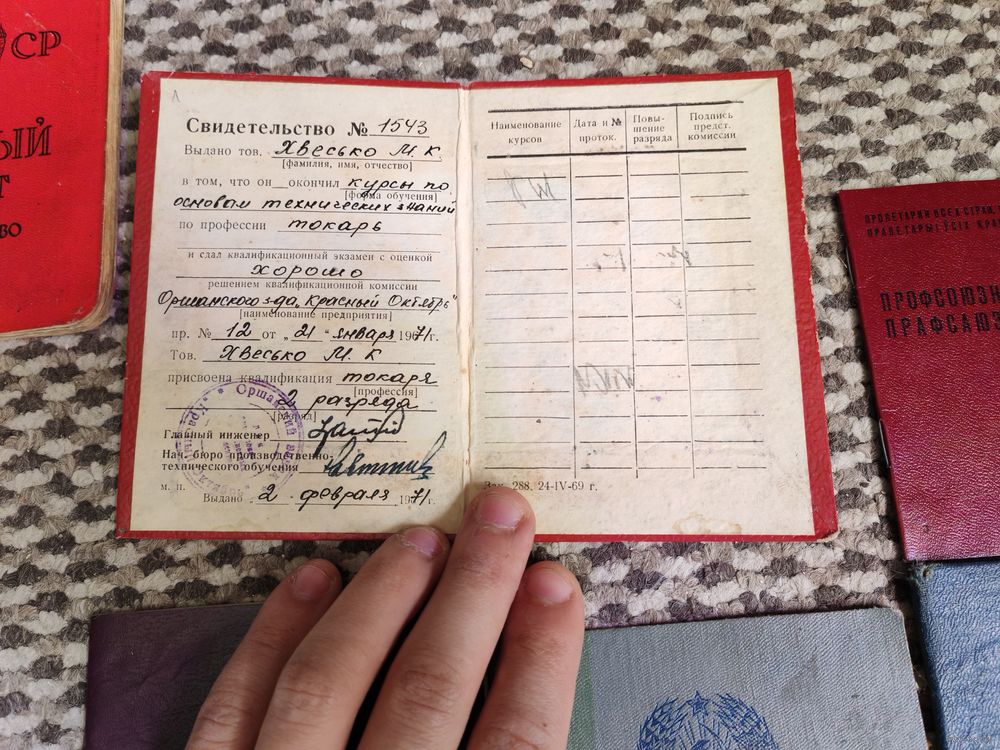 СР
ЫЙ
Т
ВО
Свидетельство № 1543
Выдано тов. Хвесько М. К.
[фамилия, имя, отчество]
в том, что он окончил курсы по
[форма обучения]
основам технических знаний
по профессии токарь
и сдал квалификационный экзамен с оценкой
хорошо
решением квалификационной комиссии
Оршанского з-да „Красный Октябрь"
[наименование предприятия]
пр. № 12 от „21" января 1971г.
Тов. Хвесько М. К
присвоена квалификация токаря
[профессия]
2 разряда
[разряд]
Главный инженер
Нач. бюро производственно-
технического обучения
м. п.
Выдано 2 февраля 1971г.
Наименование курсов
Дата и № проток.
Повы-шение разряда
Подпись предст. комиссии
Зак. 288. 24-IV-69 г.
ПРОЛЕТАРИИ ВСЕХ СТРАН
ПРАЛЕТАРЫІ ЎСІХ КРА
ПРОФСОЮЗН
ПРАФСАЮЗ